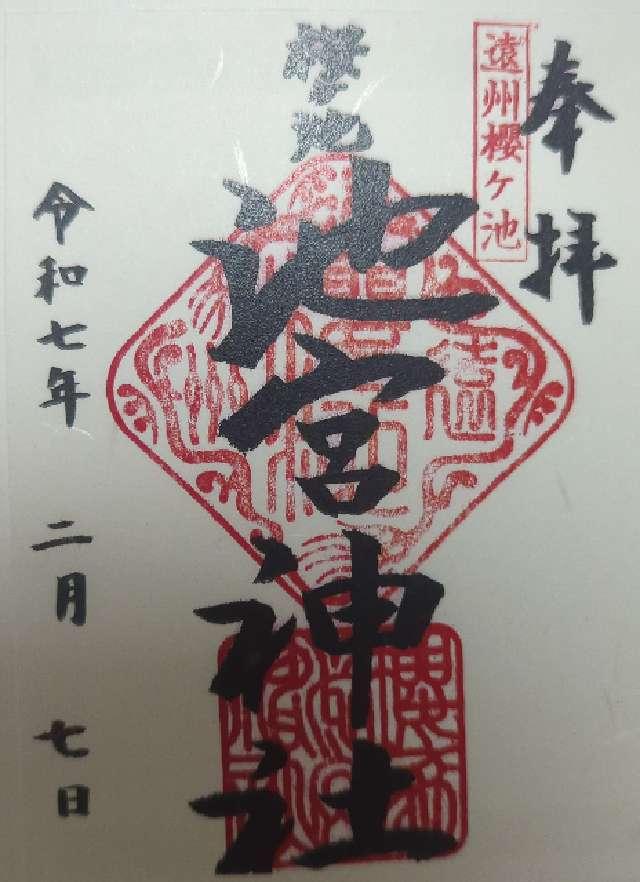 奉拝
遠州櫻ヶ池
櫻ヶ池
池宮神社
令和七年 二月 七日